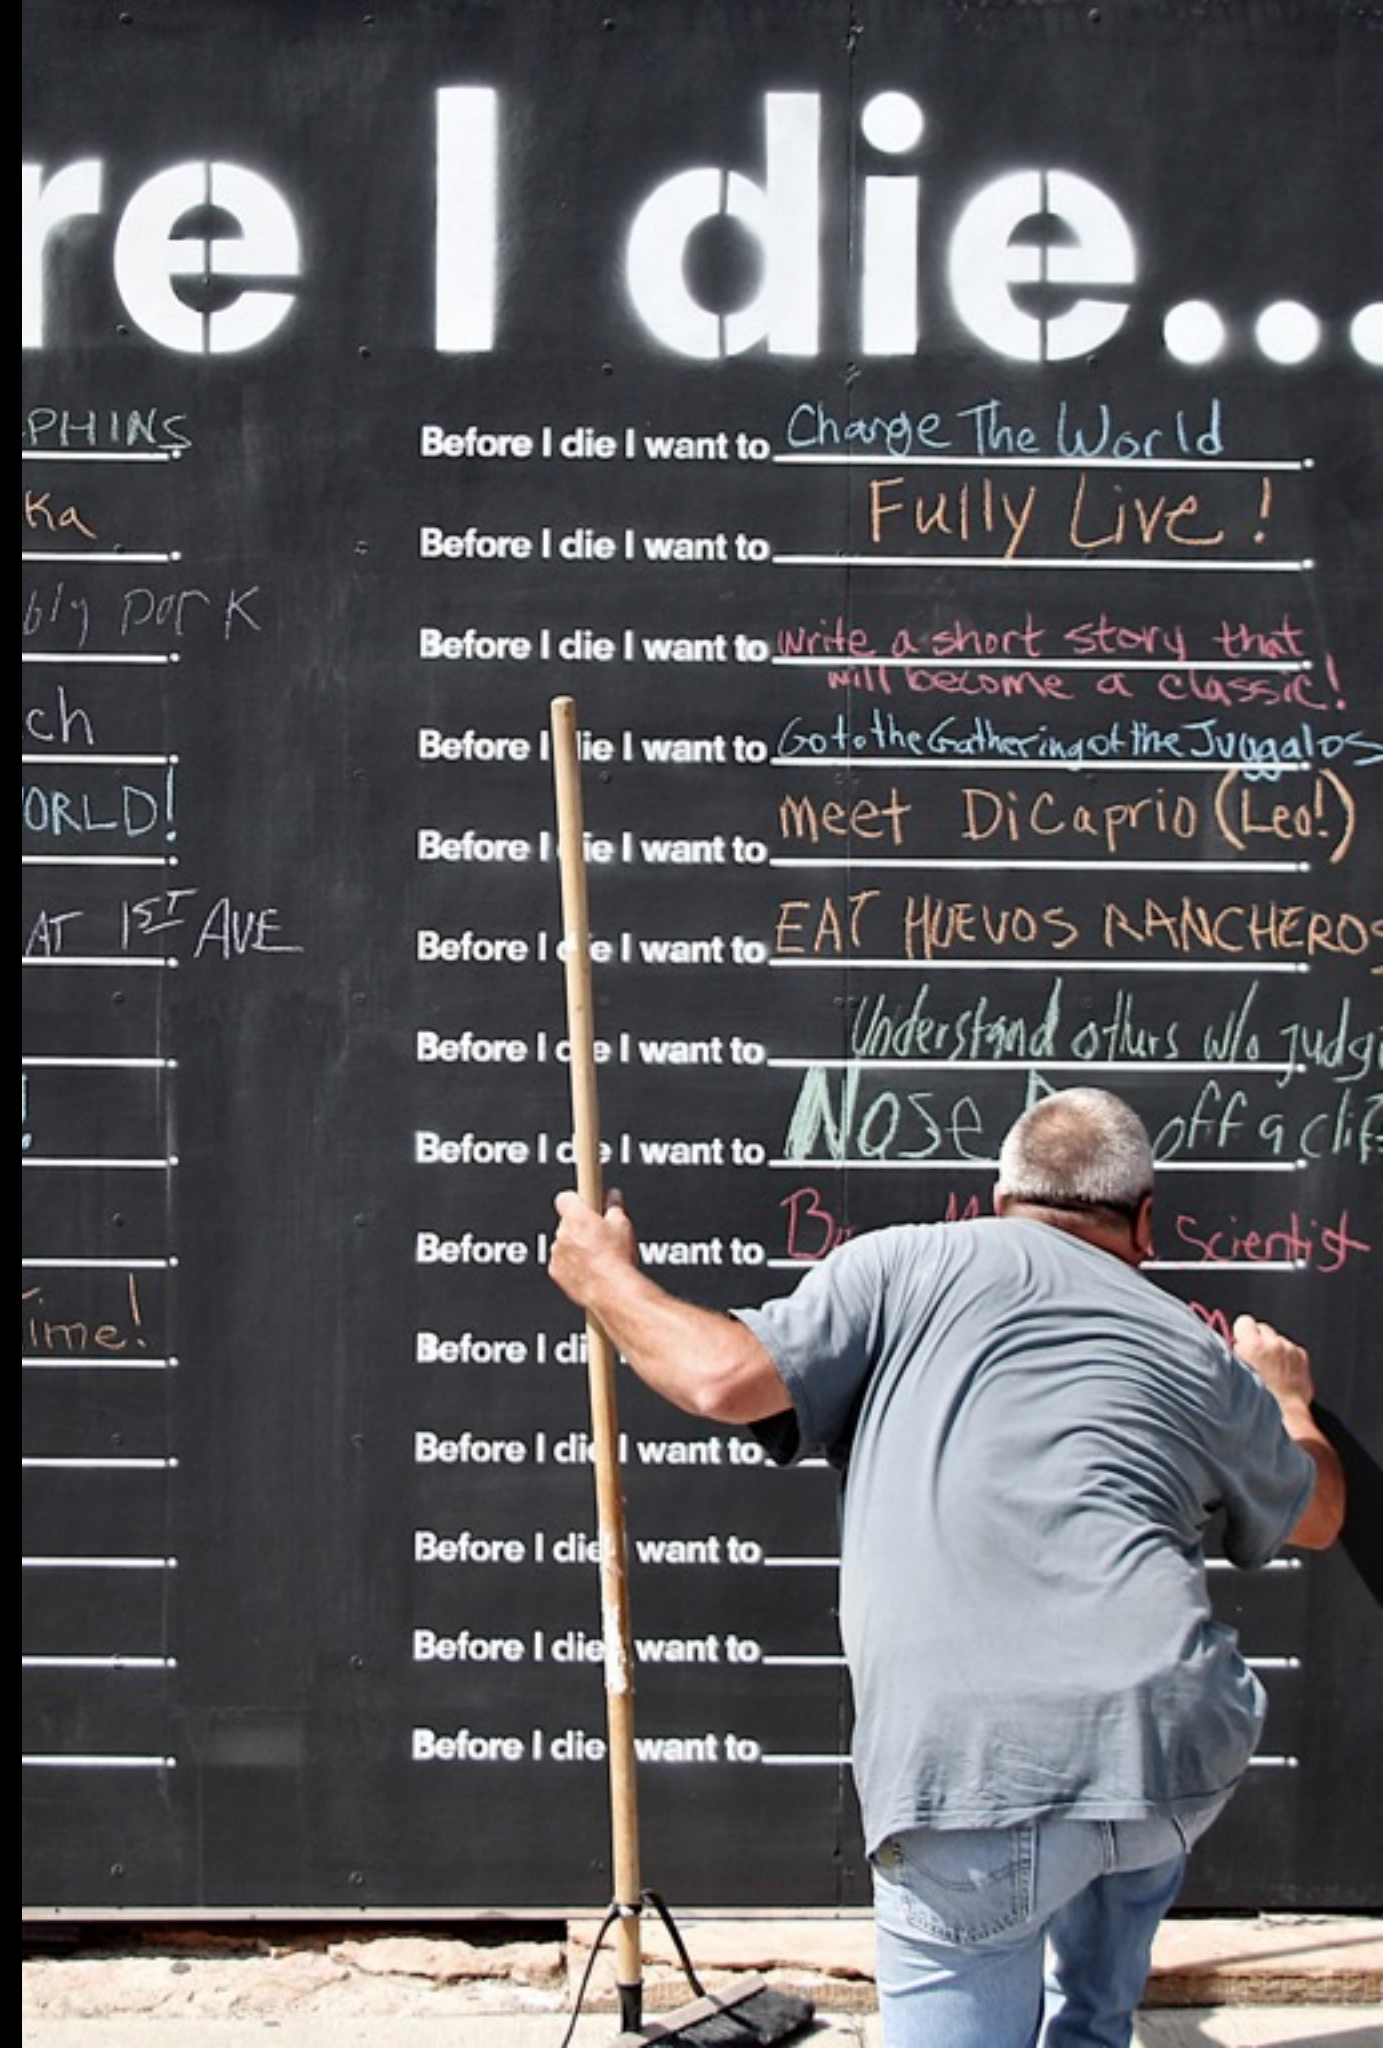 re I die...
PHINS
Before I die I want to Change The World.
ka
Before I die I want to Fully Live!.
bly pork
Before I die I want to write a short story that.
will become a classic!
ch
Before I die I want to Go to the Gathering of the Juggalos.
ORLD!
Before I die I want to meet DiCaprio (Leo!).
AT 1ST AVE
Before I die I want to EAT HUEVOS RANCHEROS.
Before I die I want to Understand others w/o judgi
!
Before I die I want to Nose off a clif
Before I want to Scientist
ime!
Before I di
Before I die I want to
Before I die want to
Before I die want to
Before I die want to